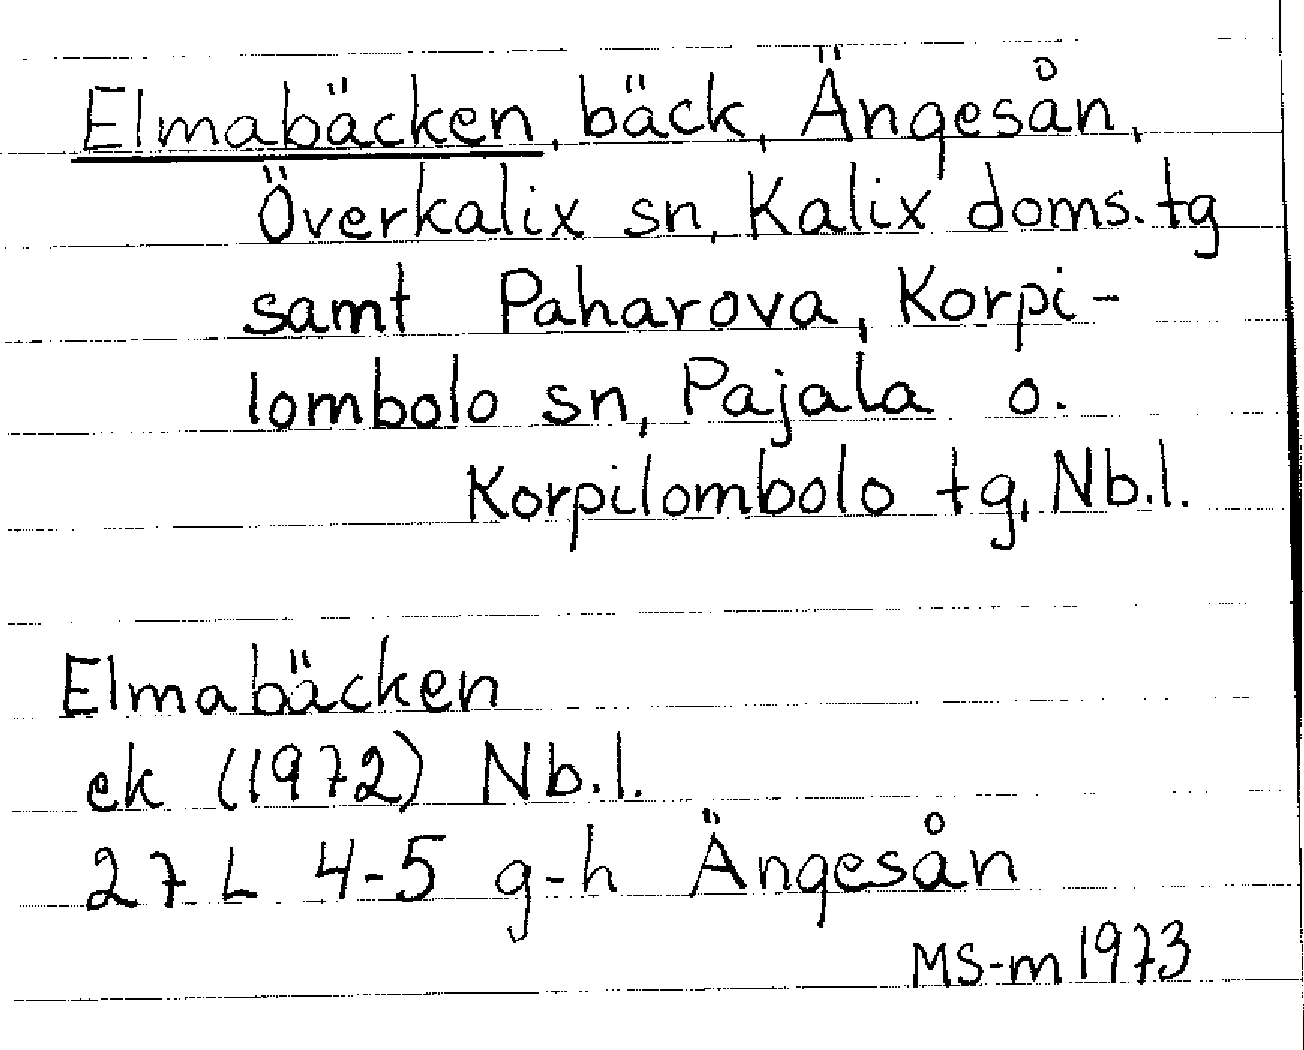 Elmabäcken, bäck, Ängesån,
Överkalix sn, Kalix doms. tg
samt Paharova, Korpi-
lombolo sn, Pajala o.
Korpilombolo tg, Nb.l.
Elmabäcken
ek (1972) Nb.l.
27 L 4-5 g-h Ängesån
MS-m 1973